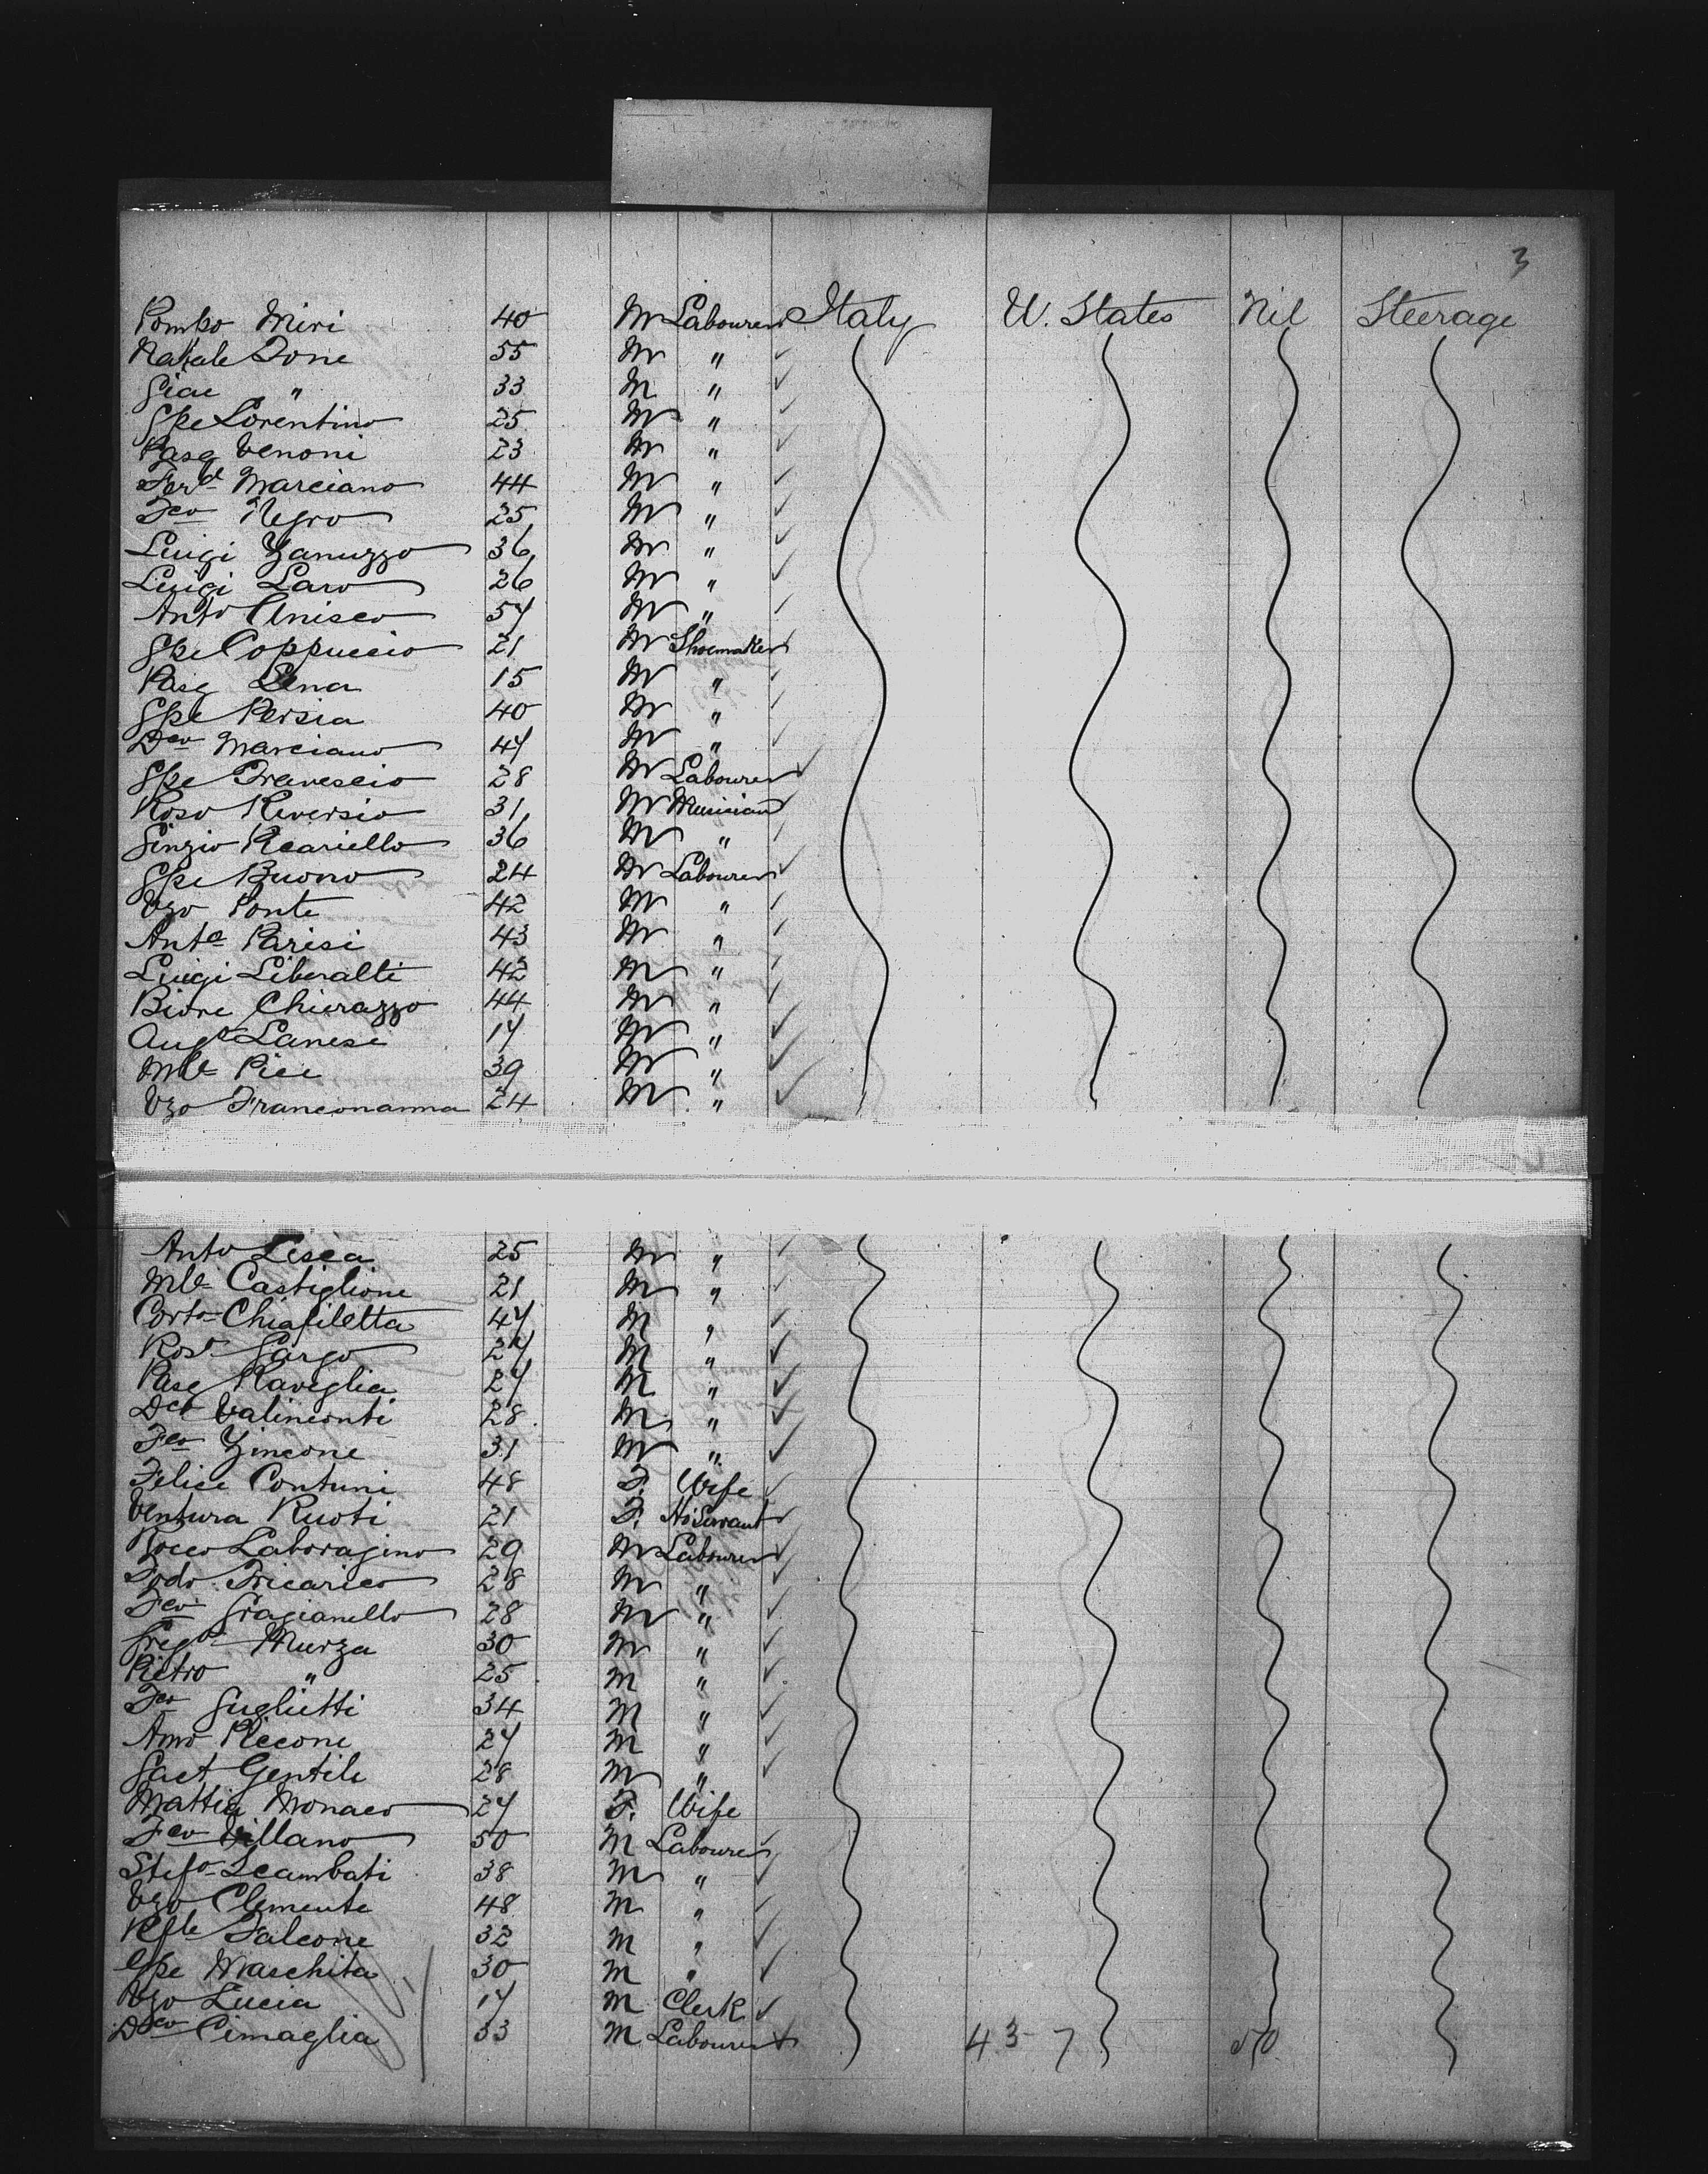 3
Pompo Miri 40 M Labourer Italy U. States Nil Steerage
Natale Tone 55 M "
Giac " 33 M "
Gpe Lorentino 25 M "
Pasq Venoni 23 M "
Ferd Marciano 44 M "
Fco Negro 25 M "
Luigi Zanuzzo 36 M "
Luigi Laro 26 M "
Anto Anisco 57 M "
Gpe Coppuccio 21 M Shoemaker
Pasq Lena 15 M "
Gpe Persia 40 M "
Dco Marciano 47 M "
Gpe 28 M Labourer
Roso Riversio 31 M Musician
Ginzio Picariello 36 M "
Gpe Buono 24 M Labourer
Vzo Ponte 42 M "
Anto Parisi 43 M "
Luigi Liberalti 42 M "
Biore Chierazzo 44 M "
Augo Lanese 17 M "
Mle Pice 39 M "
Vzo Franconanna 24 M "
Anto Lisca 25 M "
Mle Castiglione 21 M "
Corto Chiafiletta 47 M "
Rosr Gargo 27 M "
Pasq Raviglia 27 M "
Dco Valinconti 28 M "
Fco Zincone 31 M "
Felice Contuni 48 F. Wife
Ventura Ruoti 21 F. Ho Servant
Rocco Laboragino 29 M Labourer
Todo Tricarico 28 M "
Fco Gragianello 28 M "
Grego Murza 30 M "
Pietro " 25 M "
Fco Guglietti 34 M "
Amo Piccone 27 M "
Gaet Gentile 28 M "
Mattia Monaco 27 F. Wife
Fco Villano 50 M Labourer
Stefo Scambati 38 M "
Vzo Clemente 48 M "
Rfle Falcone 32 M "
Gpe Maschita 30 M "
Vzo Lucia 17 M Clerk
Dco Cimaglia 33 M Labourer 43-7 50